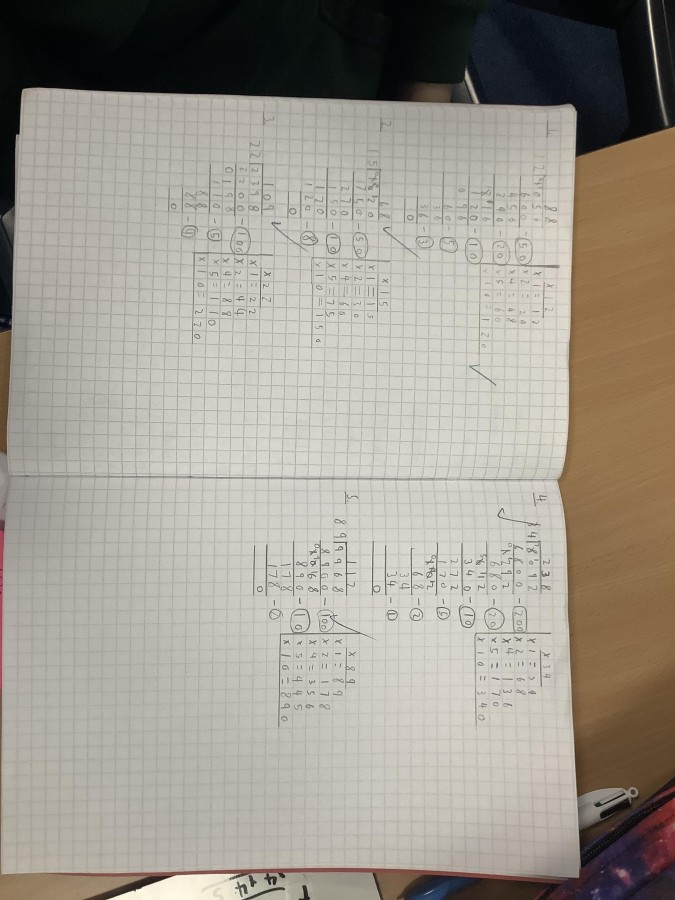 1.
88
12 1056
600 - 50
456
240 - 20
216
120 - 10
096
60 - 5
36
36 - 3
0
x12
x1 = 12
x2 = 24
x4 = 48
x5 = 60
x10 = 120
2
68
15 1020
750 - 50
270
150 - 10
120
120 - 8
0
x15
x1 = 15
x2 = 30
x4 = 60
x5 = 75
x10 = 150
3
109
22 2398
2200 - 100
0198
110 - 5
88
88 - 4
0
x22
x1 = 22
x2 = 44
x4 = 88
x5 = 110
x10 = 220
4
238
34 8092
6800 - 200
1292
680 - 20
612
340 - 10
272
170 - 5
102
68 - 2
34
34 - 1
0
x34
x1 = 34
x2 = 68
x4 = 136
x5 = 170
x10 = 340
5
112
89 9968
8900 - 100
1068
890 - 10
178
178 - 2
0
x89
x1 = 89
x2 = 178
x4 = 356
x5 = 445
x10 = 890